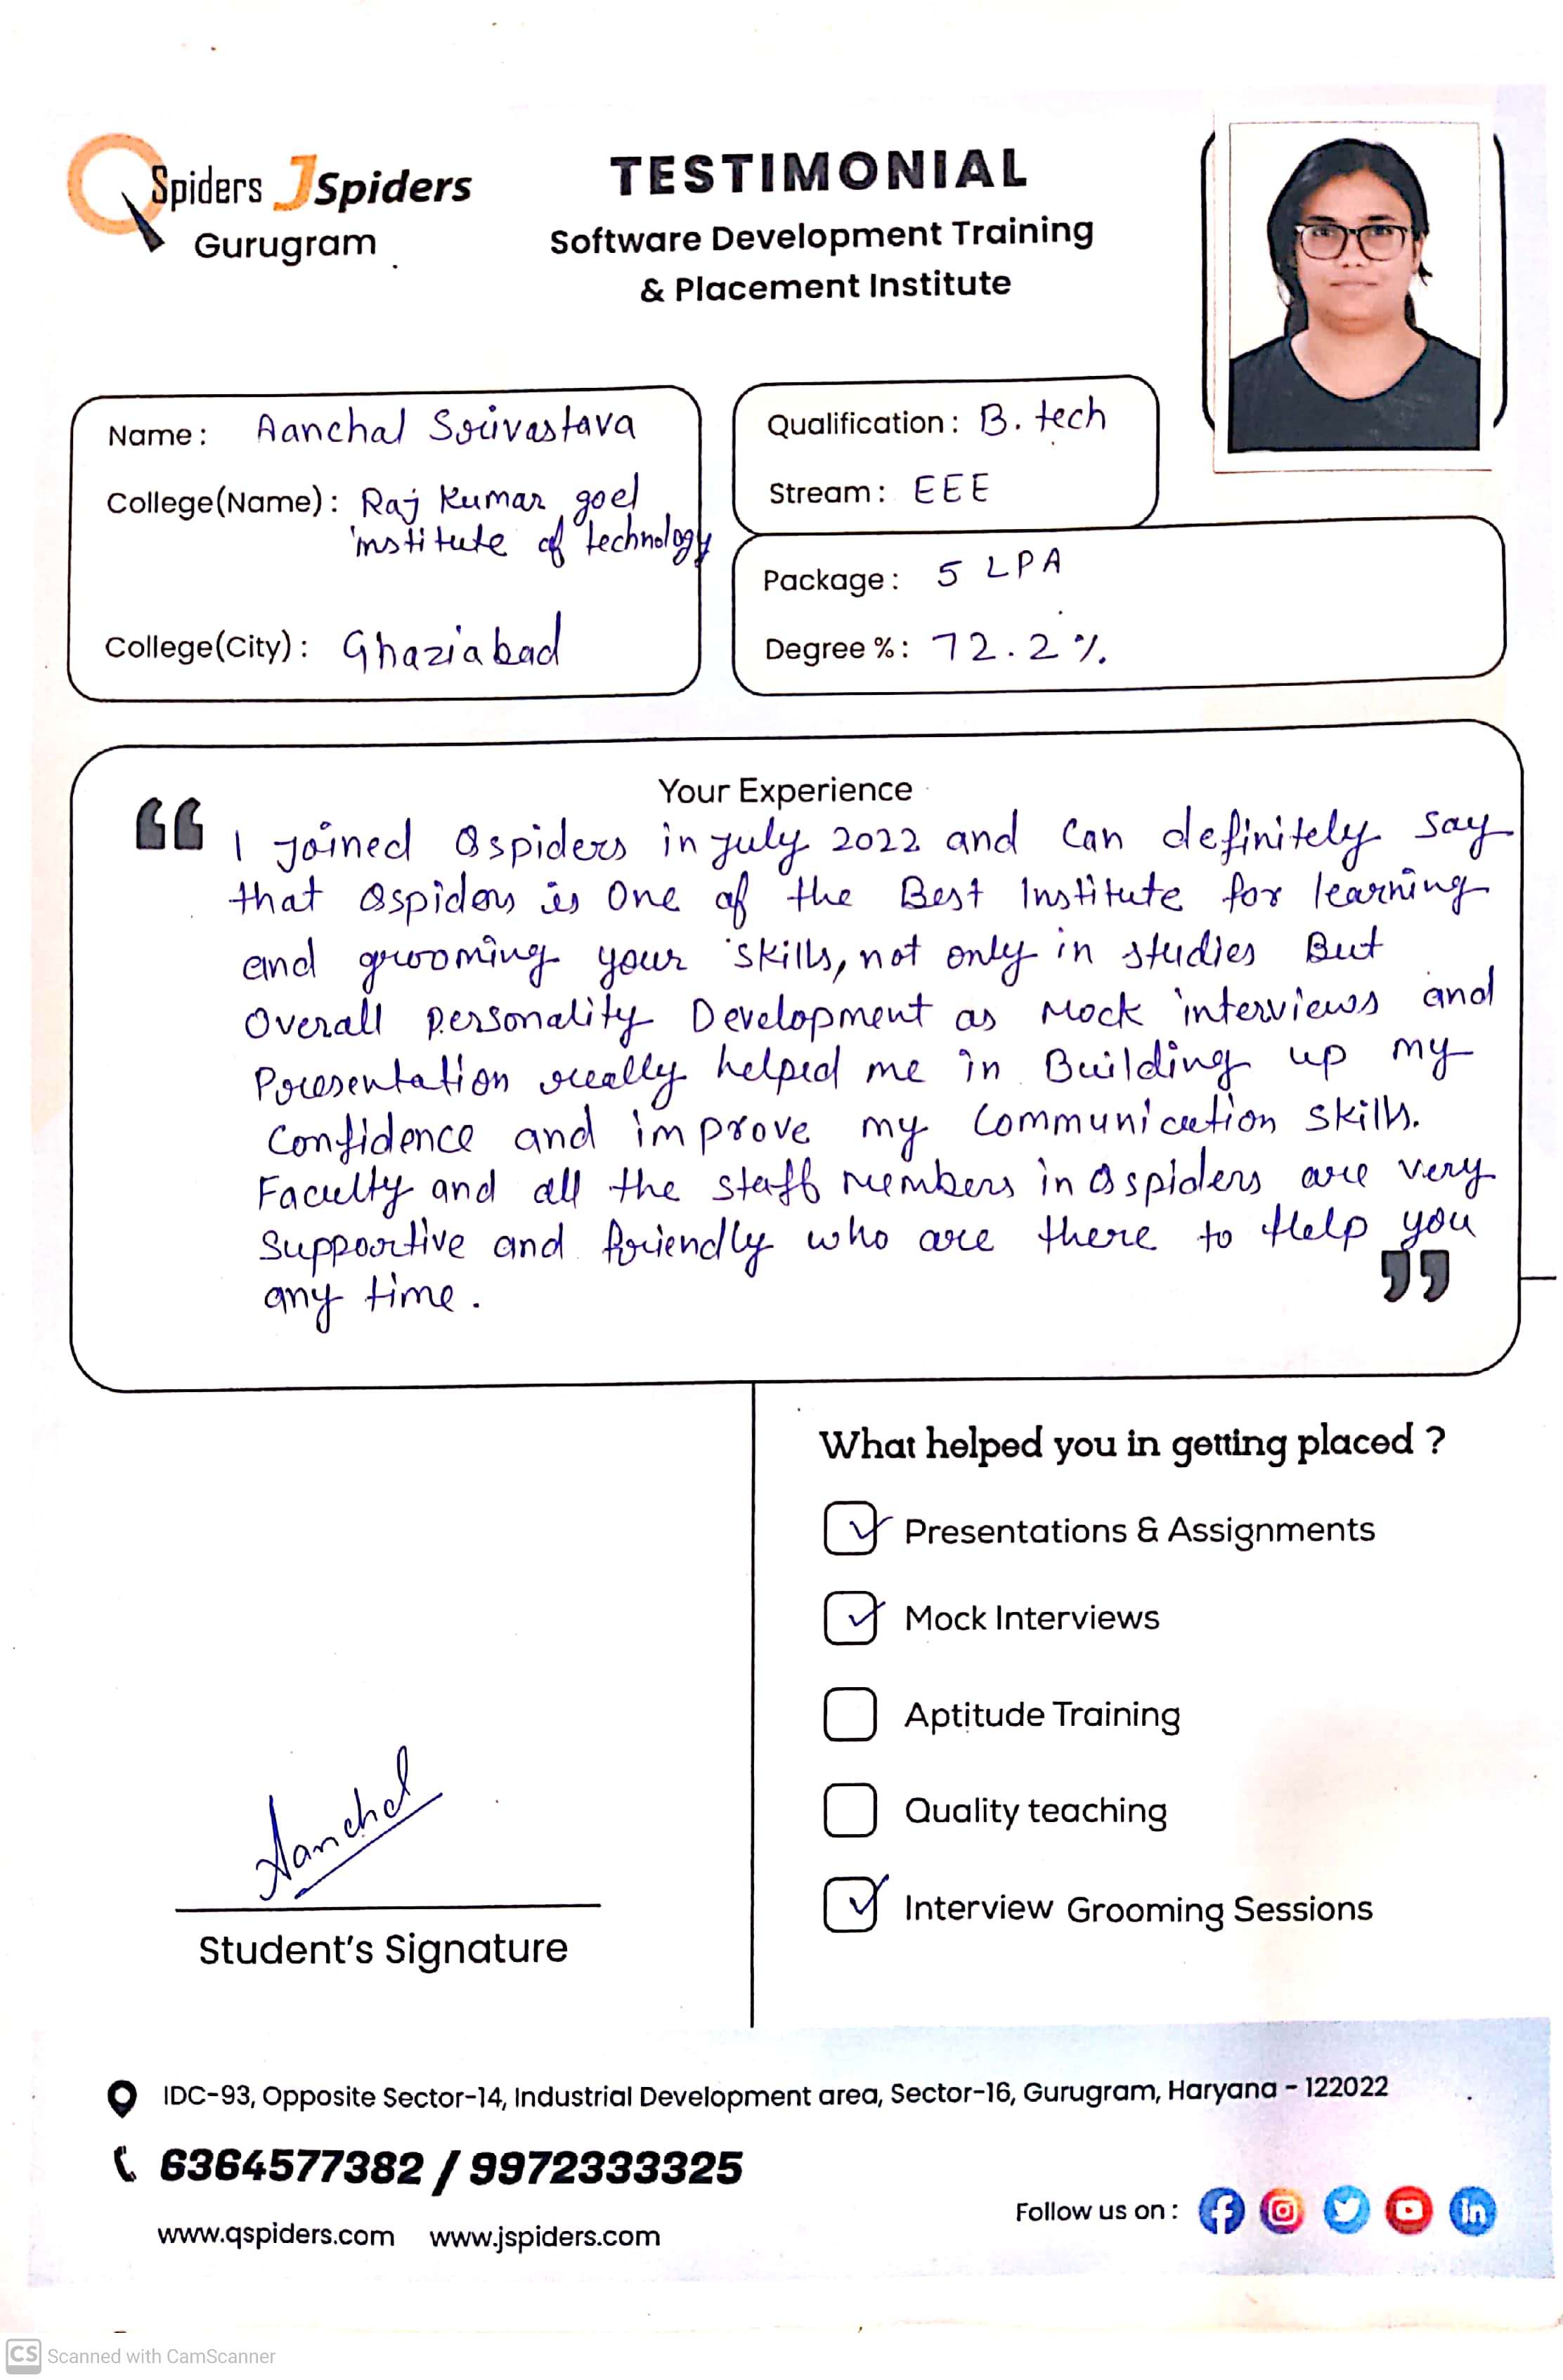 QSpiders JSpiders
Gurugram
TESTIMONIAL
Software Development Training
& Placement Institute
Name : Aanchal Srivastava
College(Name) : Raj Kumar goel
institute of technology
College(City) : Ghaziabad
Qualification : B. tech
Stream : EEE
Package : 5 LPA
Degree % : 72.2 %.
Your Experience
“ I joined Qspiders in july 2022 and can definitely say
that Qspiders is One of the Best Institute for learning
and grooming your skills, not only in studies But
Overall personality Development as Mock interviews and
Presentation really helped me in Building up my
Confidence and improve my Communication skills.
Faculty and all the staff members in Qspiders are very
Supportive and friendly who are there to Help you
any time. ”
What helped you in getting placed ?
Presentations & Assignments
Mock Interviews
Aptitude Training
Quality teaching
Interview Grooming Sessions
Aanchal
Student's Signature
IDC-93, Opposite Sector-14, Industrial Development area, Sector-16, Gurugram, Haryana - 122022
6364577382 / 9972333325
www.qspiders.com www.jspiders.com
Follow us on :
CS Scanned with CamScanner